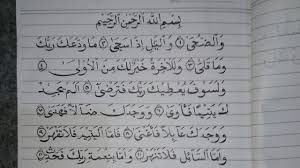 بِسْمِ اللهِ الرَّحْمٰنِ الرَّحِيْمِ
وَالضُّحَىٰ ١ وَالَّيْلِ إِذَا سَجَىٰ ٢ مَا وَدَّعَكَ رَبُّكَ
وَمَا قَلَىٰ ٣ وَلَلْآخِرَةُ خَيْرٌ لَكَ مِنَ الْأُولَىٰ ٤
وَلَسَوْفَ يُعْطِيْكَ رَبُّكَ فَتَرْضَىٰ ٥ أَلَمْ يَجِدْ
كَ يَتِيْمًا فَآوَىٰ ٦ وَوَجَدَكَ ضَالًّا فَهَدَىٰ ٧
وَوَجَدَكَ عَائِلًا فَأَغْنَىٰ ٨ فَأَمَّا الْيَتِيْمَ فَلَا تَقْهَرْ ٩
وَأَمَّا السَّائِلَ فَلَا تَنْهَرْ ١٠ وَأَمَّا بِنِعْمَةِ رَبِّكَ فَحَدِّثْ ١١